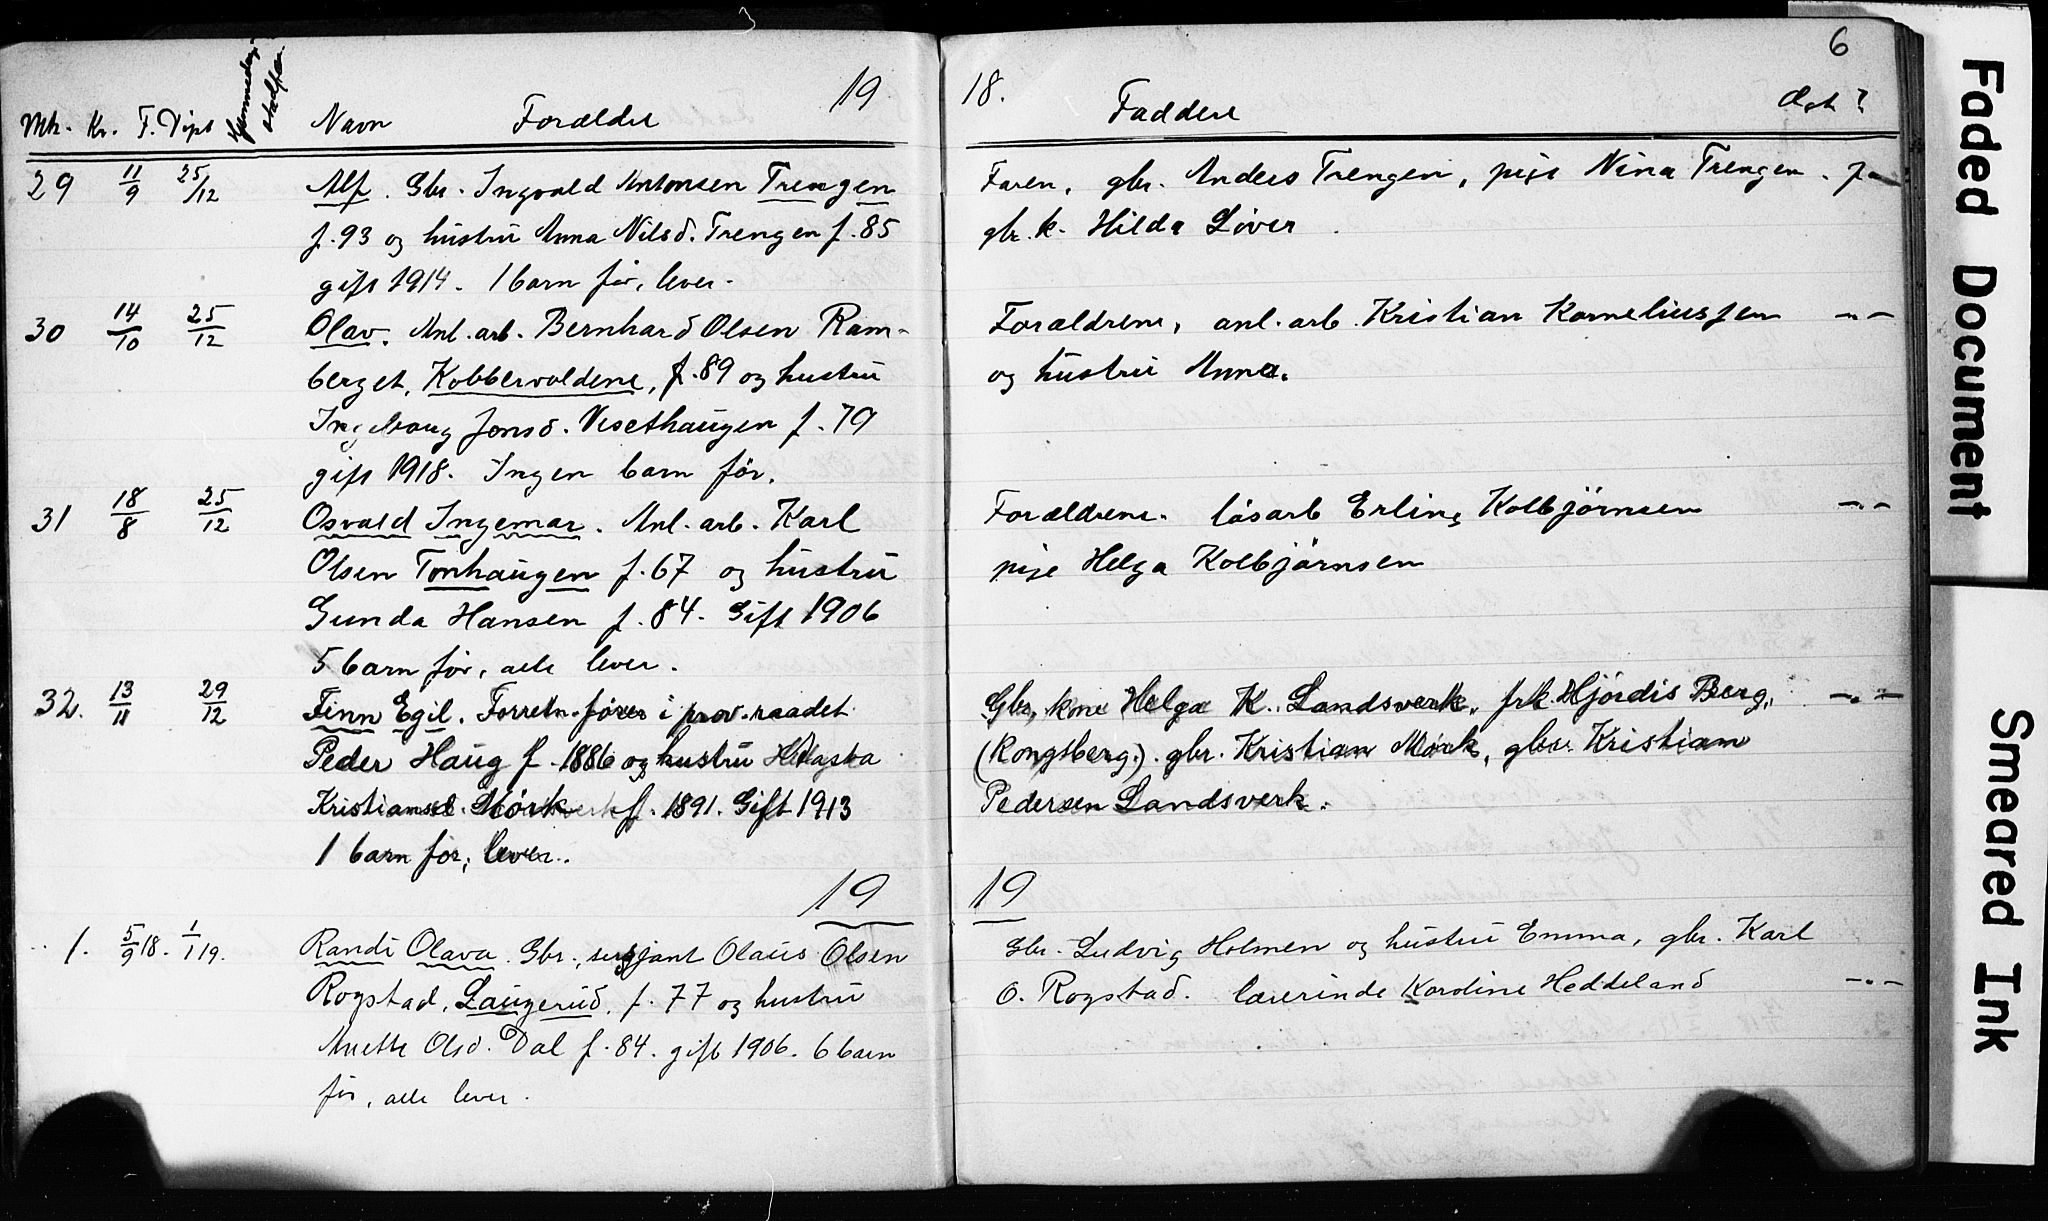 6
19
18.
Mk. Kv. F. Døpt Hjemmedøp stadf.
Navn Forældre
Faddere
Ægt?
29 11/9 25/12 Alf. Gbr. Ingvald Antonsen Trengen
f. 93 og hustru Anna Nilsd. Trengen f. 85
gift 1914. 1 barn før, lever.
Faren, gbr. Anders Trengen, pige Nina Trengen. Ja
gbr. k. Hilda Løver
30 14/10 25/12 Olav. Anl. arb. Bernhard Olsen Ram-
berget, Kobbervoldene, f. 89 og hustru
Ingeborg Jonsd. Vesethaugen f. 79
gift 1918. Ingen barn før.
Forældrene, anl. arb. Kristian Korneliussen -"-
og hustru Anna.
31 18/8 25/12 Osvald Ingemar. Anl. arb. Karl
Olsen Tonhaugen f. 67 og hustru
Gunda Hansen f. 84. Gift 1906
5 barn før, alle lever.
Forældrene. løsarb Erling Kolbjørnsen -"-
pige Helga Kolbjørnsen
32. 13/11 29/12 Finn Egil. Forretn. fører i prov. raadet
Peder Haug f. 1886 og hustru
Kristiansd. Mørk f. 1891. Gift 1913
1 barn før, lever.
Gbr. kone Helga K. Landsverk, frk. Hjørdis Berg, -"-
(Kongsberg). gbr. Kristian Mørk, gbr. Kristian
Pedersen Landsverk.
19
19
1. 5/9 18. 1/1 19. Randi Olava. Gbr., sersjant Olaus Olsen
Rogstad, Laugerud, f. 77 og hustru
Anette Olsd. Dal f. 84. gift 1906. 6 barn
før, alle lever.
Gbr. Ludvig Holmen og hustru Emma, gbr. Karl
O. Rogstad. lærerinde Karoline Heddeland -"-
Faded Document
Smeared Ink